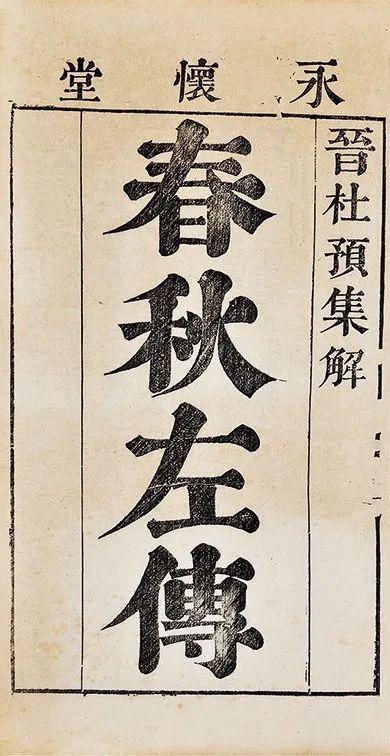 永懷堂
晉杜預集解
春秋左傳